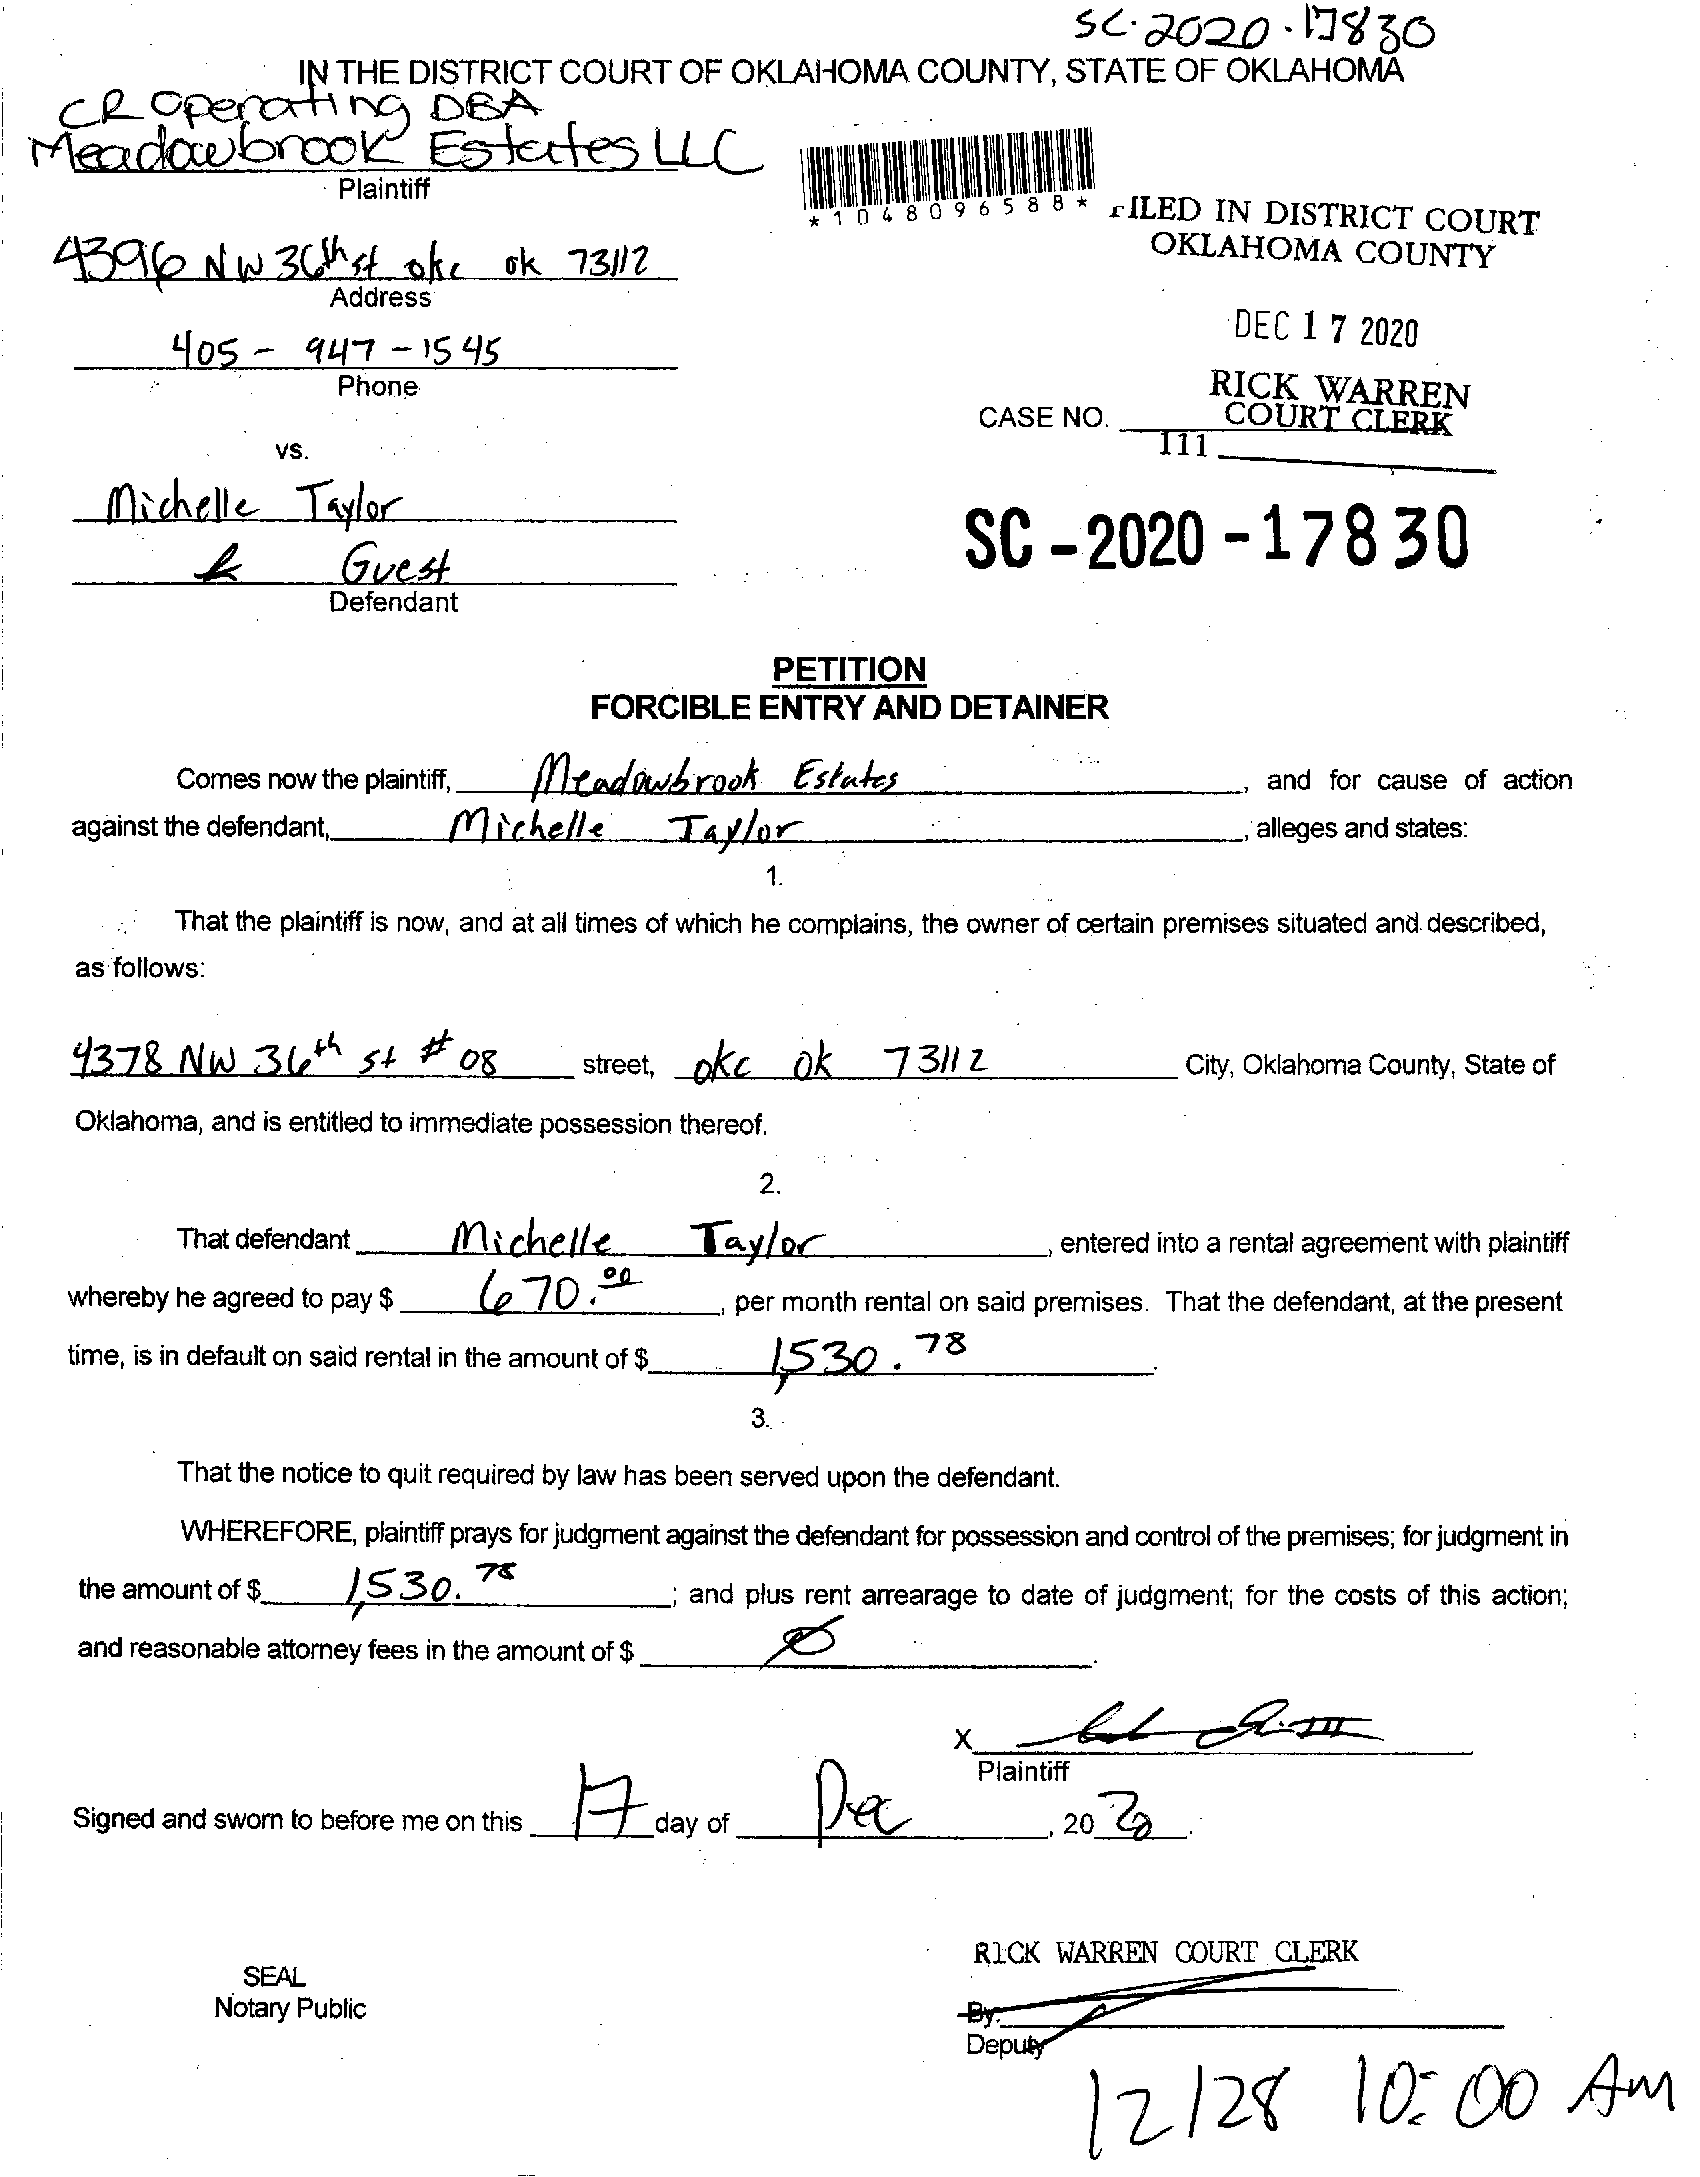 SC-2020-17830
IN THE DISTRICT COURT OF OKLAHOMA COUNTY, STATE OF OKLAHOMA
CR Operating DBA
Meadowbrook Estates LLC
Plaintiff
*1048096588*
FILED IN DISTRICT COURT
OKLAHOMA COUNTY
4396 NW 36th st okc ok 73112
Address
DEC 17 2020
405 - 947 - 1545
Phone
RICK WARREN
COURT CLERK
CASE NO.
111
vs.
Michelle Taylor
SC-2020-17830
& Guest
Defendant
PETITION
FORCIBLE ENTRY AND DETAINER
Comes now the plaintiff, Meadowbrook Estates, and for cause of action
against the defendant, Michelle Taylor, alleges and states:
1.
That the plaintiff is now, and at all times of which he complains, the owner of certain premises situated and described,
as follows:
4378 NW 36th st # 08 street, okc ok 73112 City, Oklahoma County, State of
Oklahoma, and is entitled to immediate possession thereof.
2.
That defendant Michelle Taylor, entered into a rental agreement with plaintiff
whereby he agreed to pay $ 670.00, per month rental on said premises. That the defendant, at the present
time, is in default on said rental in the amount of $ 1,530.78.
3.
That the notice to quit required by law has been served upon the defendant.
WHEREFORE, plaintiff prays for judgment against the defendant for possession and control of the premises; for judgment in
the amount of $ 1,530.78; and plus rent arrearage to date of judgment; for the costs of this action;
and reasonable attorney fees in the amount of $ Ø.
X
Plaintiff
Signed and sworn to before me on this 17 day of Dec, 2020.
RICK WARREN COURT CLERK
SEAL
Notary Public
By:
Deputy
12/28 10:00 AM